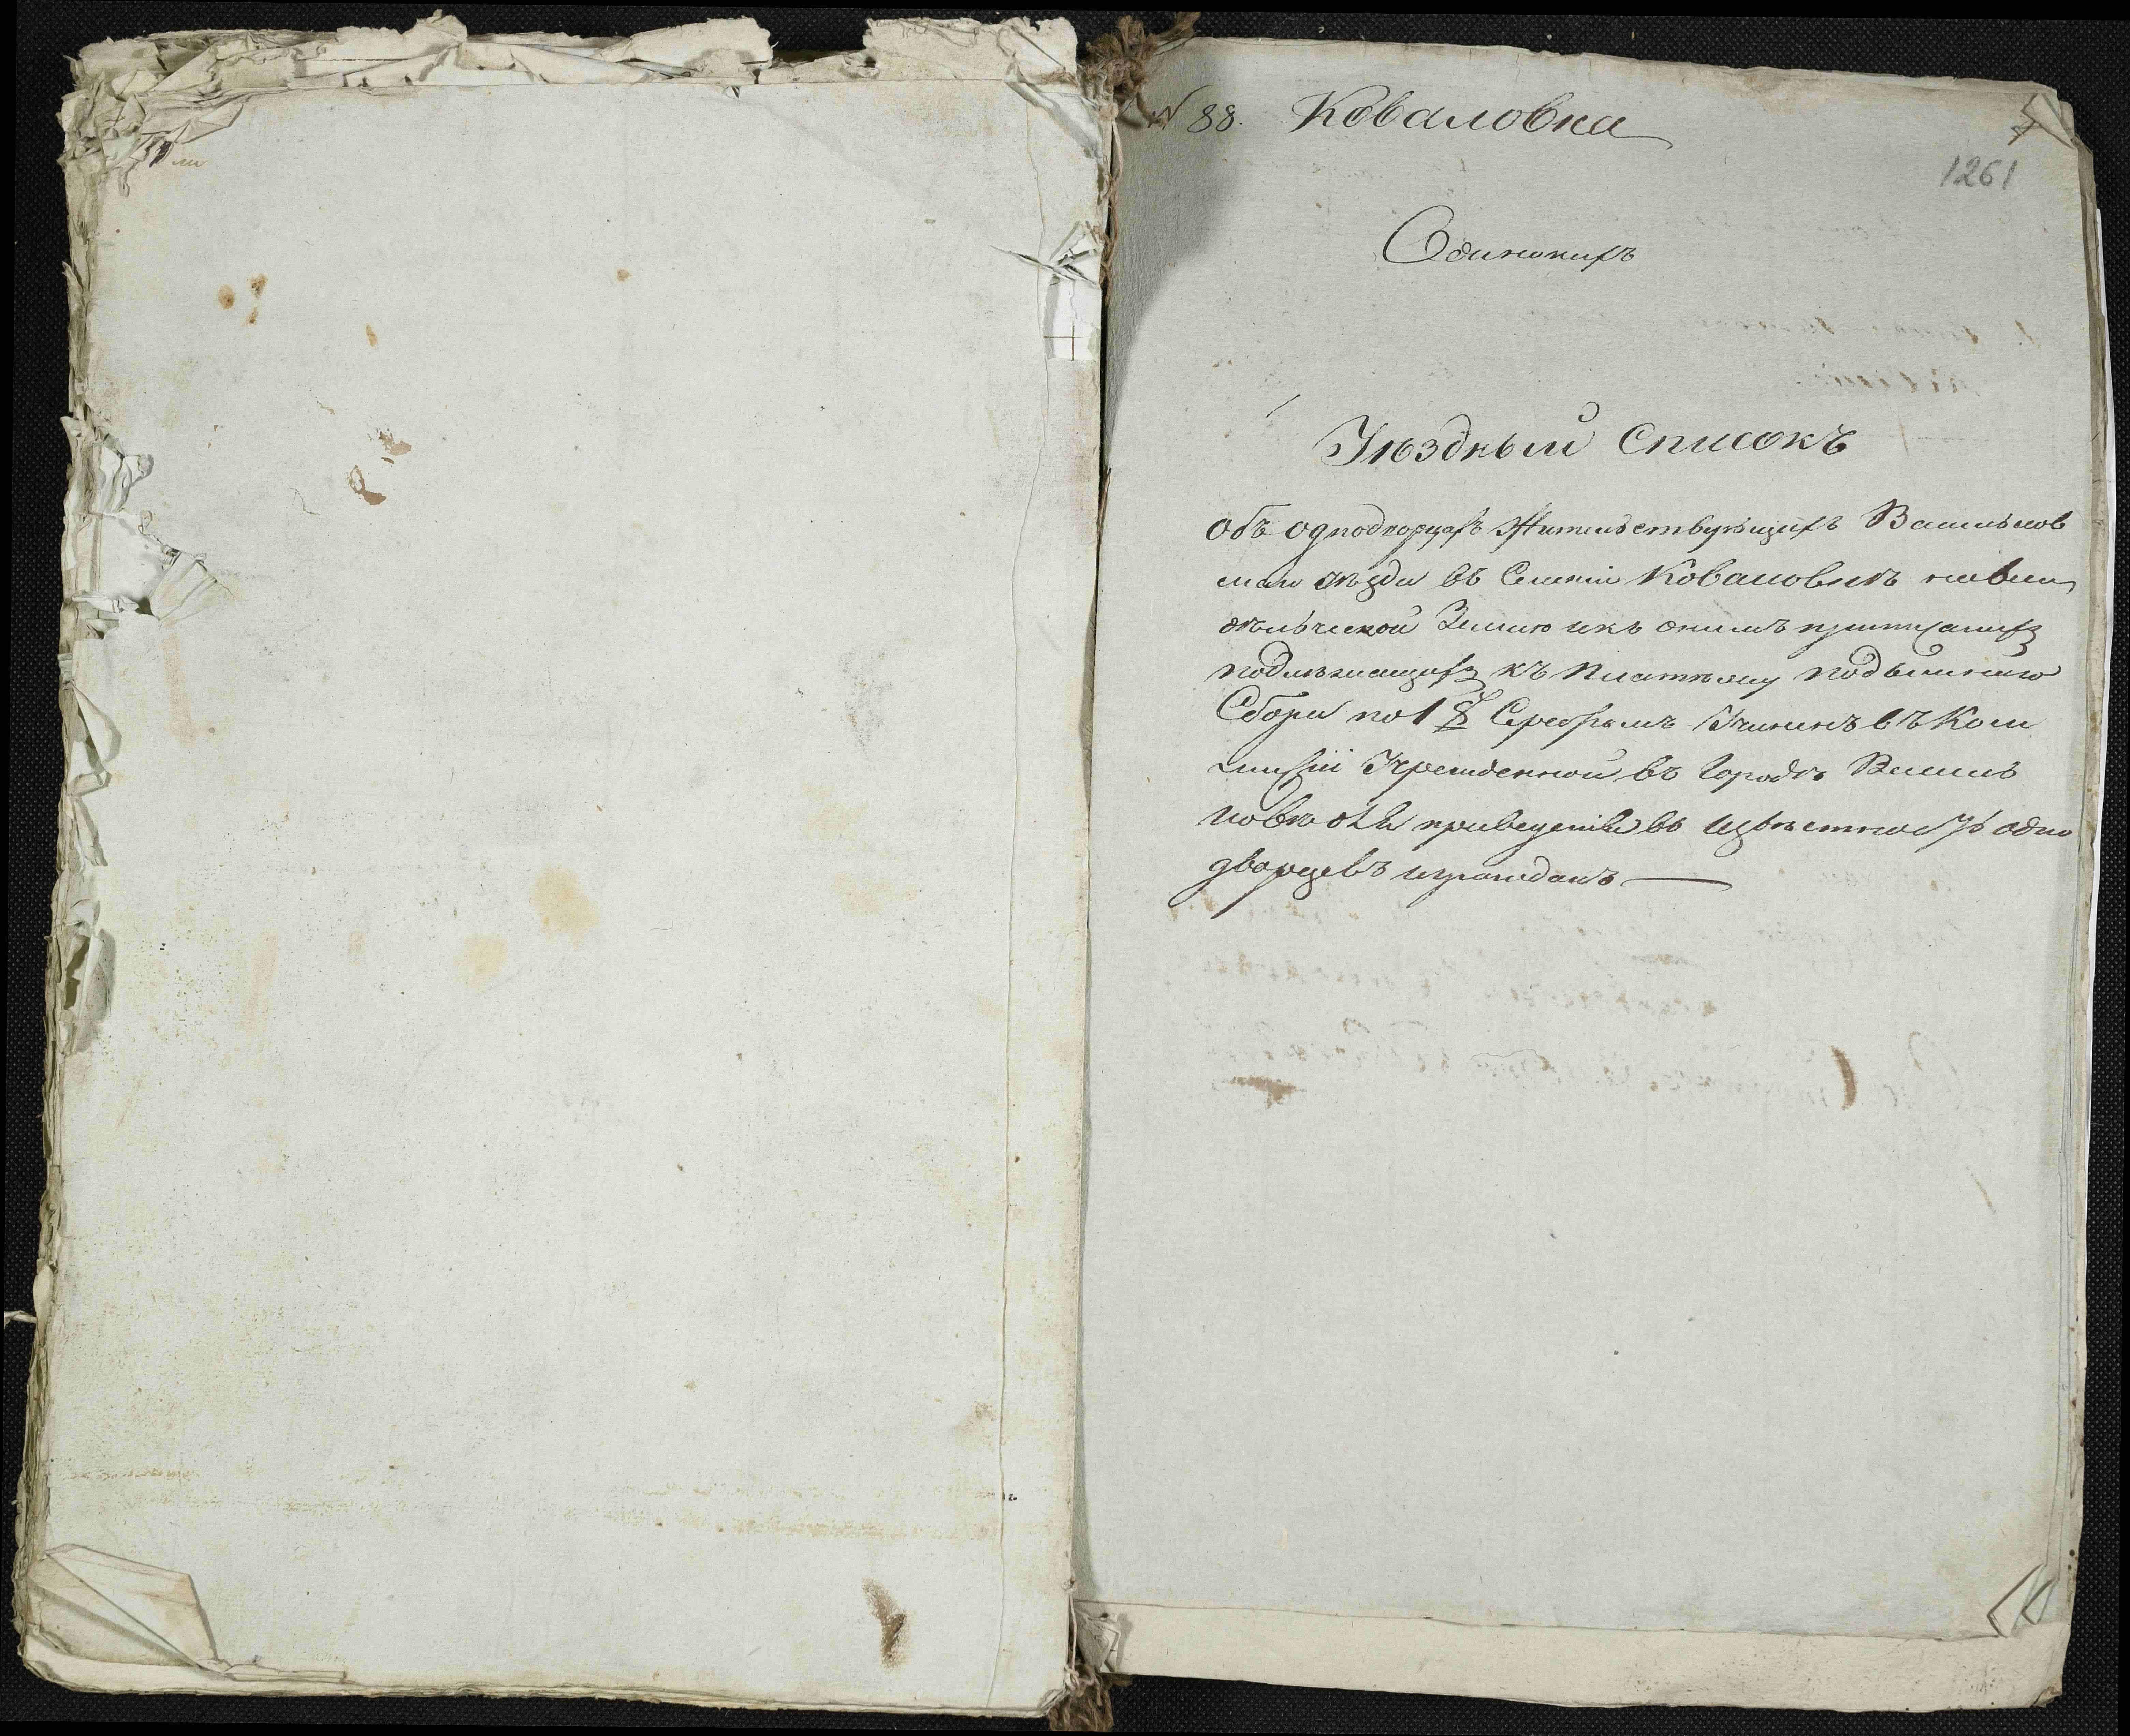 № 88. Коваловка
1261
Одинокихъ
Уѣздный Списокъ
Объ однодворцахъ Жительствующихъ Васильков
скаго уѣзда въ Селенiи Коваловкѣ на вла
дѣльческой Землѣ и къ онымъ приписаныхъ
подлежащихъ къ платѣжу подымнаго
Сбора по 1 Серебромъ Учиненъ въ Ком
мисiи Учрежденной въ Городѣ Василь
ковѣ для приведенiя въ Извѣстность одно
дворцевъ и гражданъ